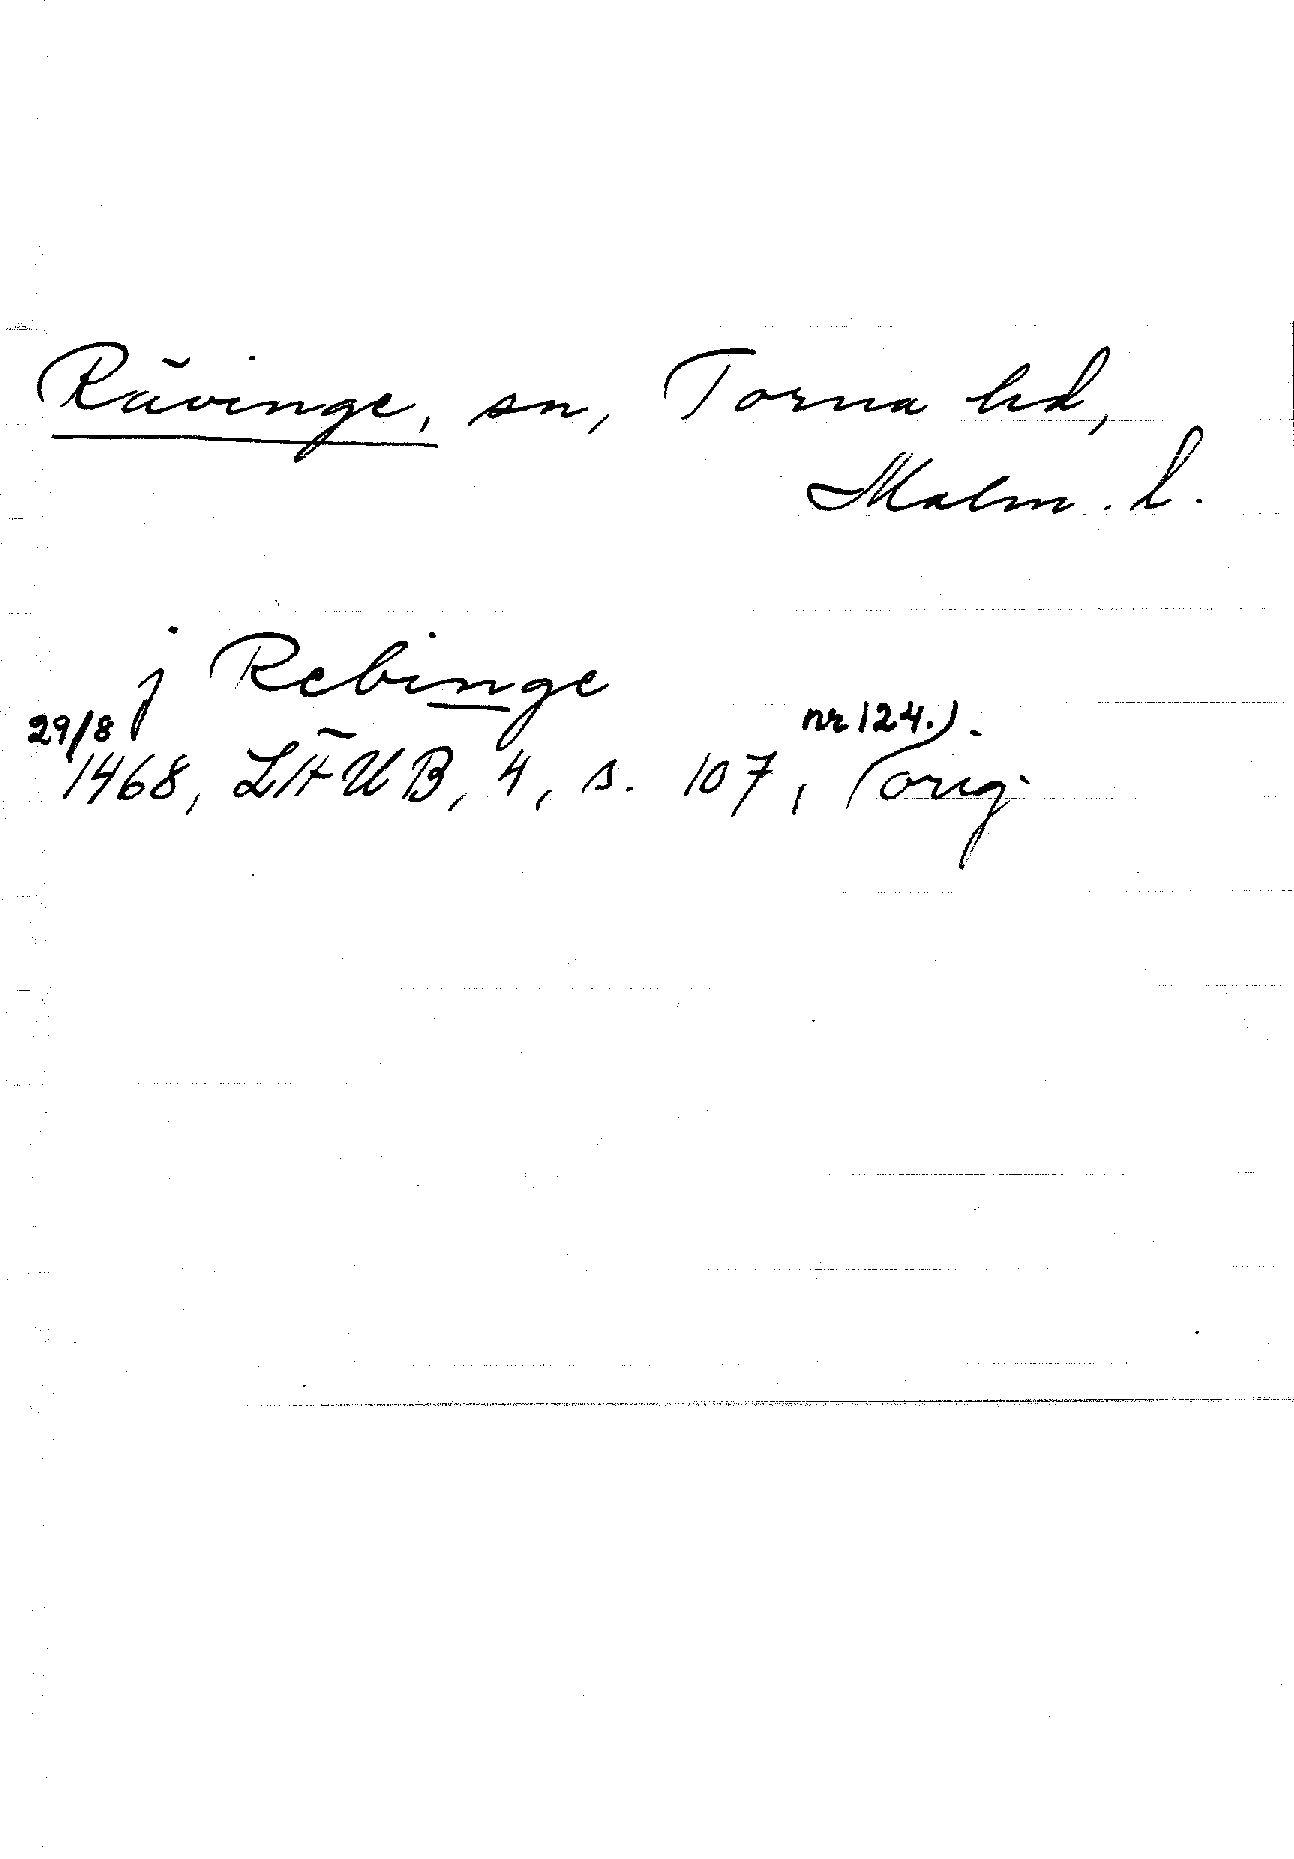 Rävinge, sn, Torna hd,
Malm. l.
j Rebinge
29/8 nr 124.).
1468, LÄUB, 4, s. 107, (orig.